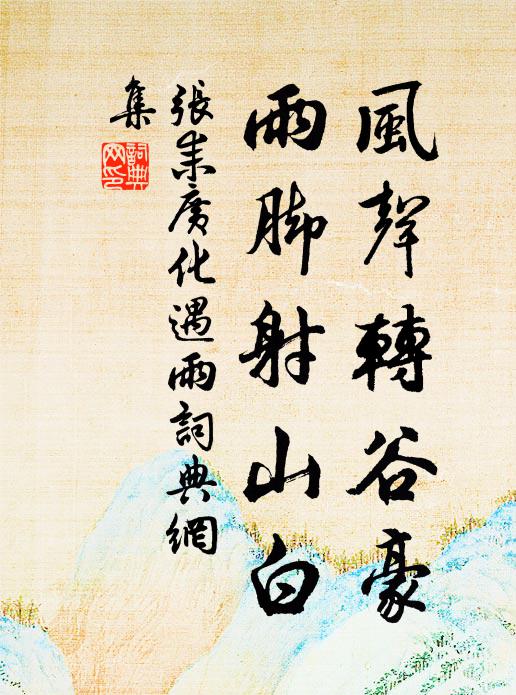 風聲轉谷豪
雨脚射山白
張耒廣化遇雨詞典網
集
詞典
网印